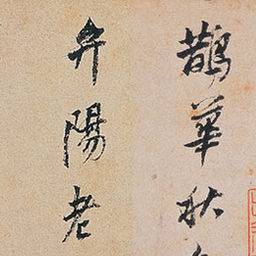 鵲華秋
弁陽老